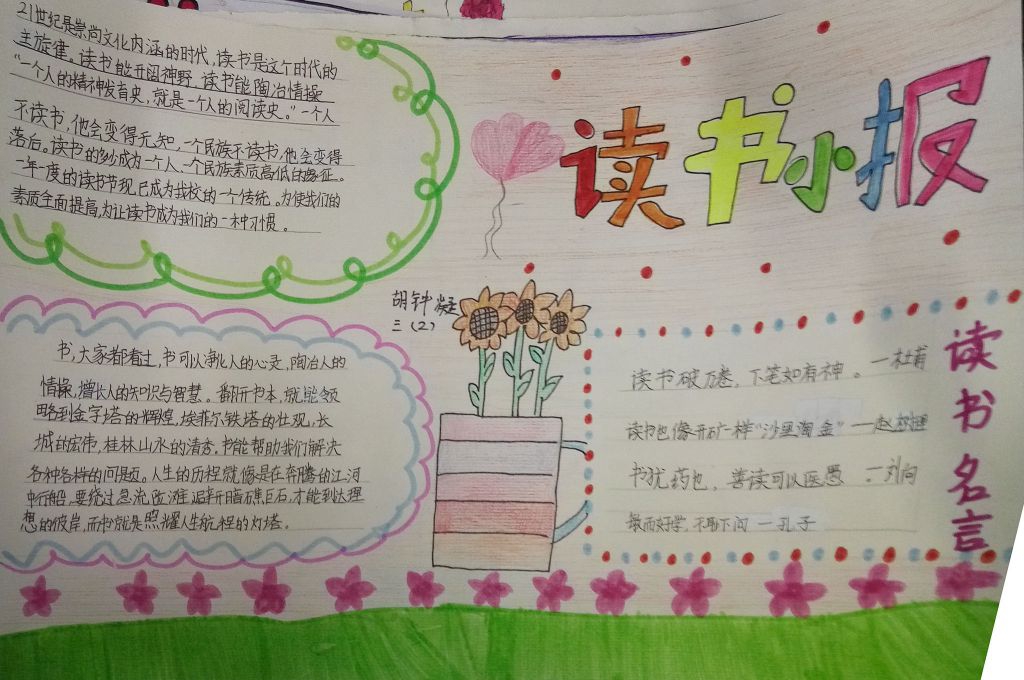 21世纪是崇尚文化内涵的时代，读书是这个时代的
主旋律。读书能开阔神野，读书能陶冶情操
“一个人的精神发育史，就是一个人的阅读史。”一个人
不读书，他会变得无知，一个民族不读书，他会变得
落后。读书的多少成为一个人、一个民族素质高低的象征。
一年一度的读书节现已成为我校的一个传统。为使我们的
素质全面提高，为让读书成为我们的一种习惯。
读书小报
胡钟凝
三（2）
书，大家都看过，书可以净化人的心灵，陶冶人的
情操，增长人的知识与智慧。翻开书本，就能领
略到金字塔的辉煌，埃菲尔铁塔的壮观，长
城的宏伟，桂林山水的清秀。书能帮助我们解决
各种各样的问题。人生的历程就像是在奔腾的江河
中行船，要绕过急流险滩，避开暗礁巨石，才能到达理
想的彼岸，而书就是照耀人生航程的灯塔。
读书名言
读书破万卷，下笔如有神。一杜甫
读书也像开矿一样“沙里淘金”一赵树理
书犹药也，善读可以医愚 一刘向
敏而好学，不耻下问 一孔子